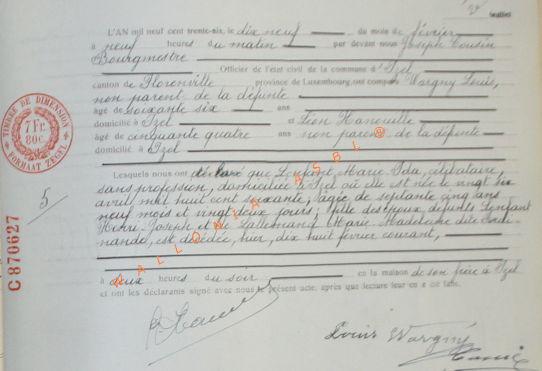 feuillet
L'AN mil neuf cent trente-six, le dix neuf du mois de février
à neuf heures du matin par devant nous Joseph Cousin
Bourgmestre
Officier de l'état civil de la commune d'Izel
canton de Florenville province de Luxembourg, ont comparu Wargny Louis,
non parent de la défunte
âgé de soixante six ans
domicilié à Izel et Léon Hanouille
âgé de cinquante quatre ans non parent de la défunte
domicilié à Izel
Lesquels nous ont déclaré que Lenfant Marie Ida, célibataire,
sans profession, domiciliée à Izel où elle est née le vingt six
avril mil huit cent soixante, âgée de septante cinq ans
neuf mois et vingt deux jours; fille des époux défunts Lenfant
Henri Joseph et de Lallemand Marie Madeleine dite Ferdi-
nande, est décédée, hier, dix huit février courant,
à deux heures du soir en la maison de son frère à Izel
et ont les déclarants signé avec nous le présent acte, après que lecture leur en a été faite.
Louis Wargny
TIMBRE DE DIMENSION
7 Fr.
80c.
FORMAAT ZEGEL
5
C 870627
WALLONIA ASBL @